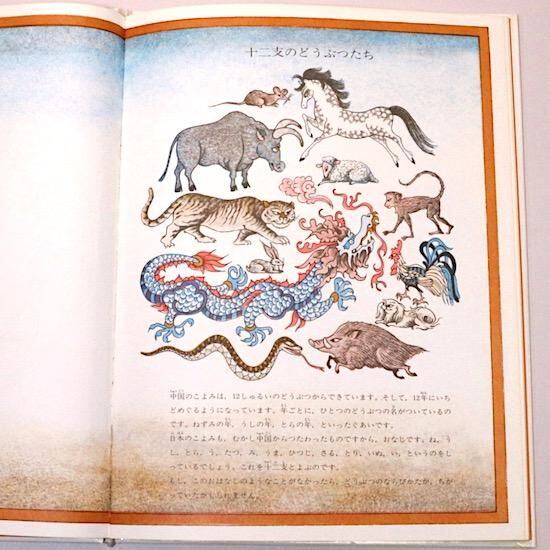 十二支のどうぶつたち
中国のこよみは、12しゅるいのどうぶつからできています。そして、12年にいち
どめぐるようになっています。年ごとに、ひとつのどうぶつの名がついているの
です。ねずみの年、うしの年、とらの年、といったぐあいです。
日本のこよみも、むかし中国からつたわったものですから、おなじです。ね、う
し、とら、う、たつ、み、うま、ひつじ、さる、とり、いぬ、い、というのをし
っているでしょう。これを十二支とよぶのです。
もし、このおはなしのようなことがなかったら、どうぶつのならびかたが、ちが
っていたかもしれません。